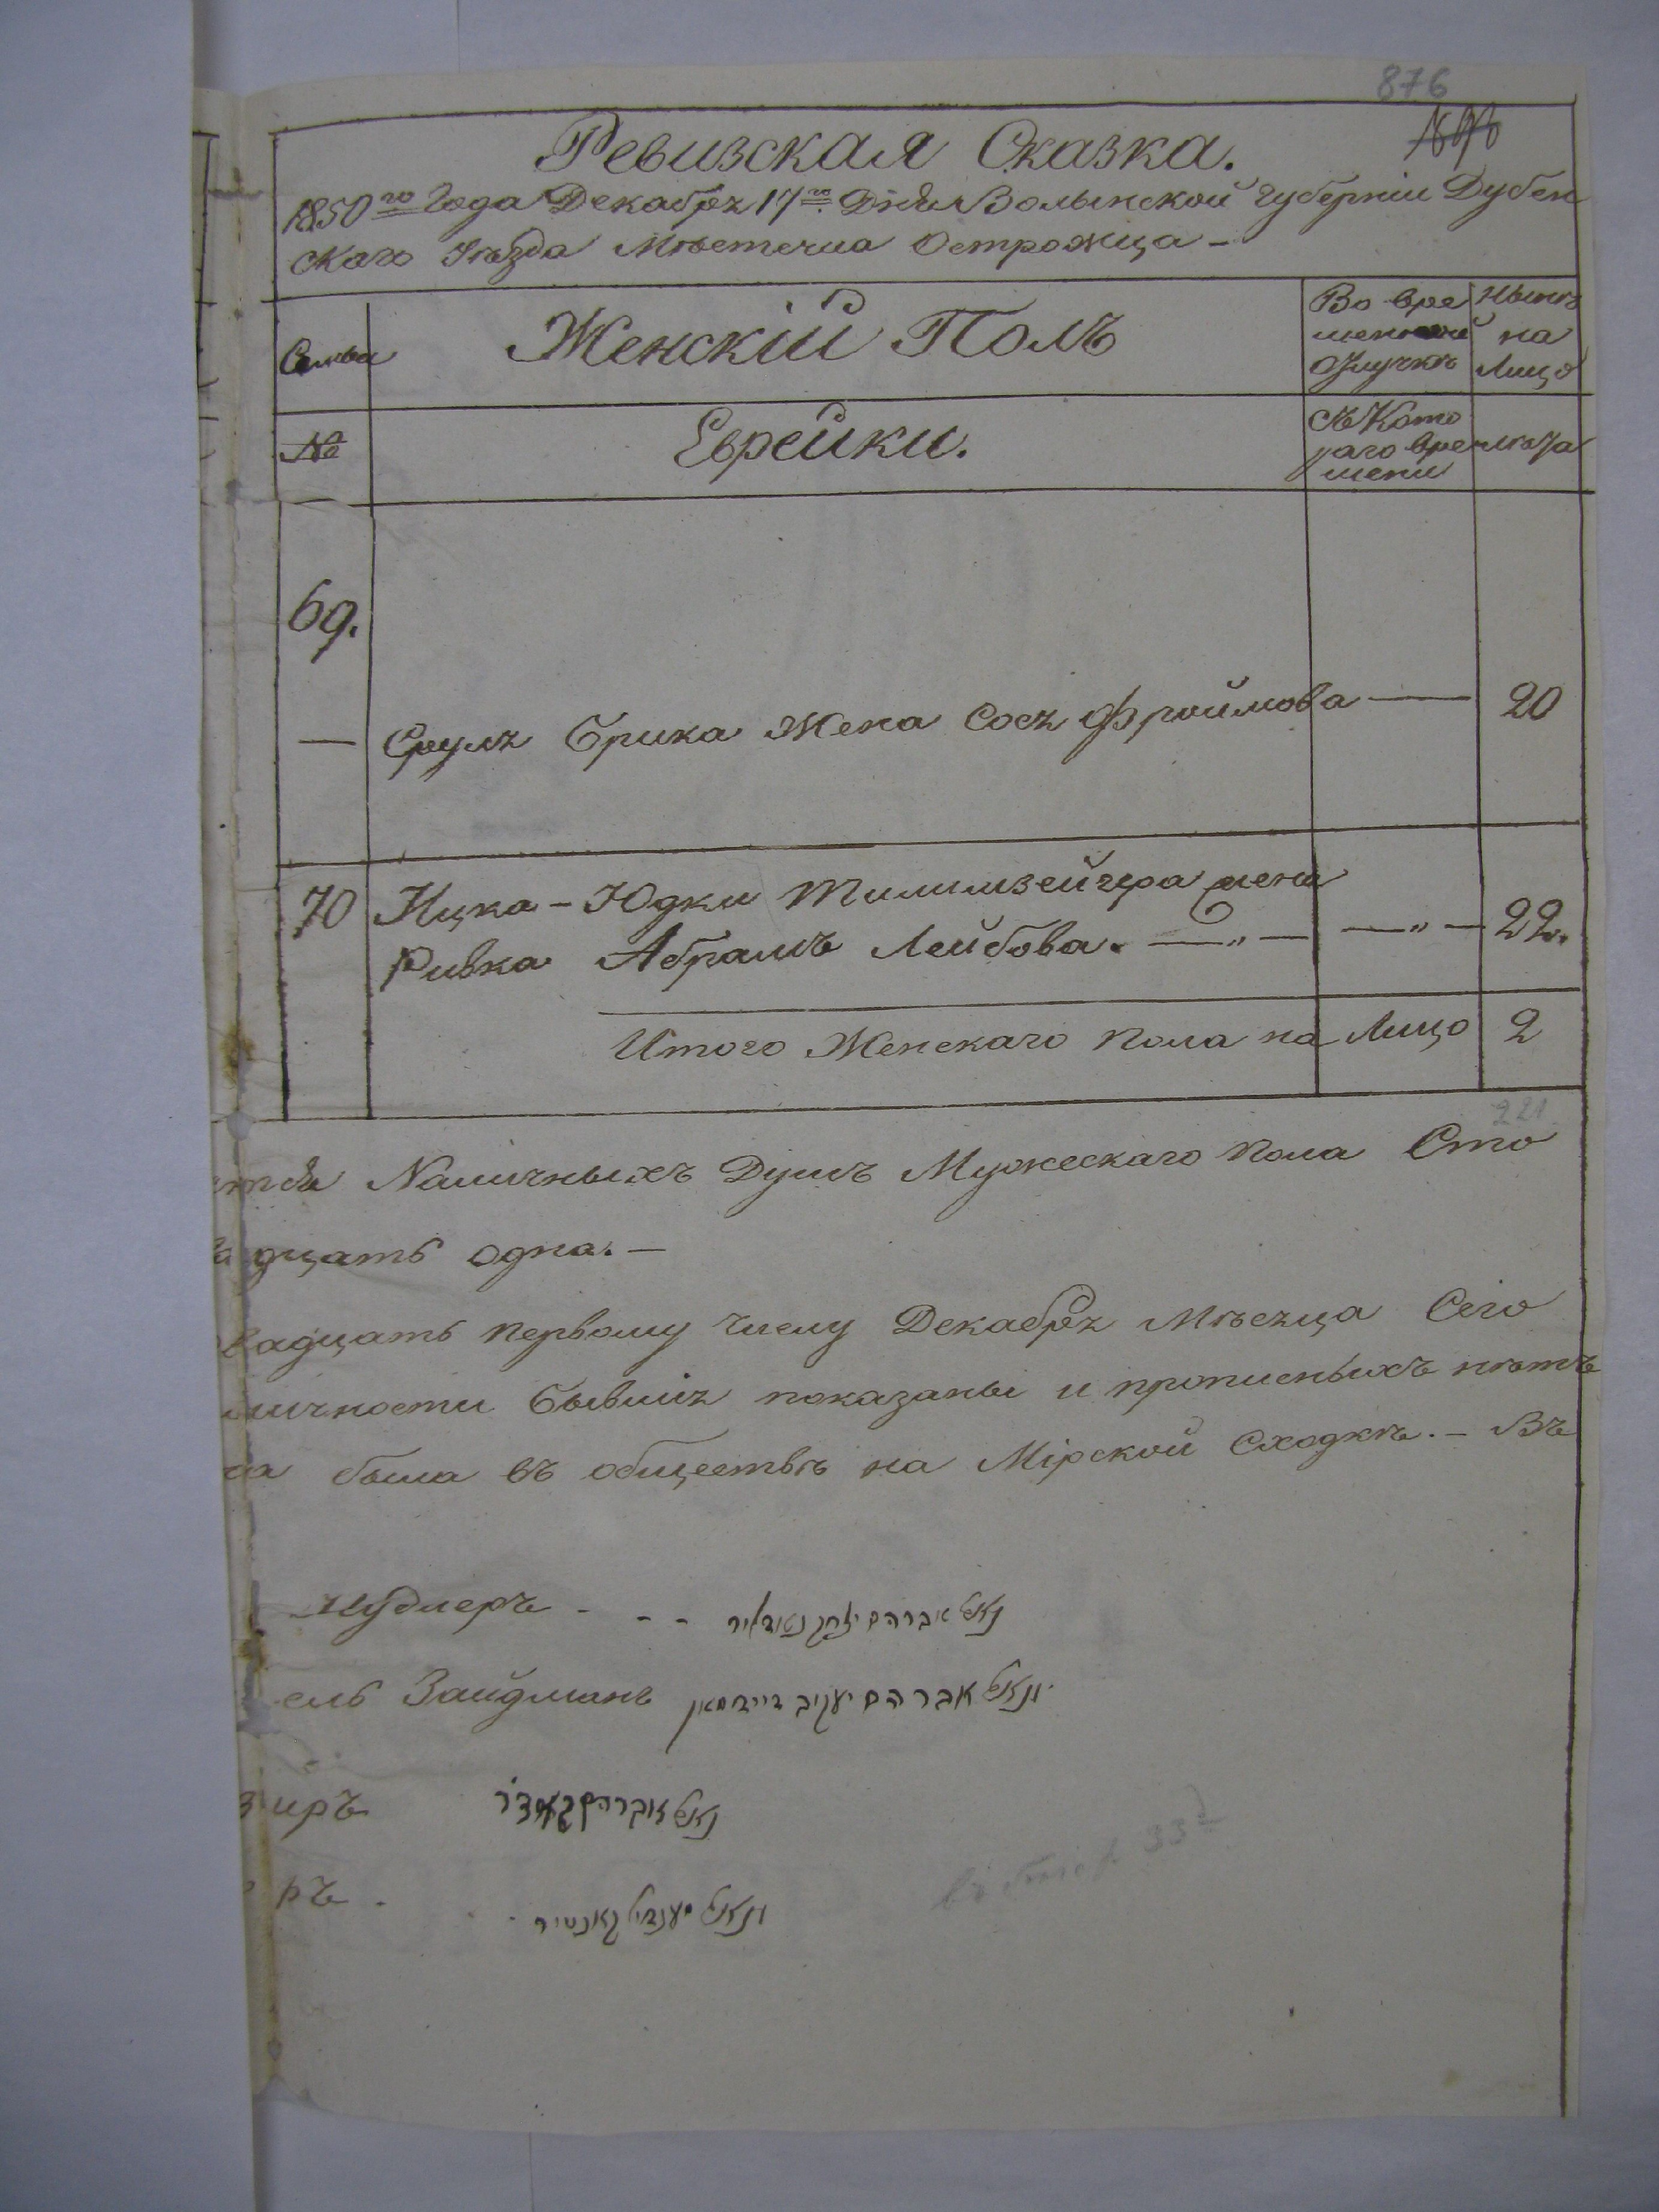 876
Ревизская Сказка.
1850го Года Декабря 17го Дня Волынской Губерніи Дубен
скаго Уѣзда Мѣстечка Остро­жца -
Семьи
Женскій Полъ
Во вре
менной
отлучкѣ
Нынѣ
на
Лицо
№
Еврейки.
Съ Кото
раго вре
мени
лѣта
69.
— Сруля Брика Жена Сося Фроймова — 20
70 Ицка-Юдки жена
Ривка Абрамъ Лейбова. —„— —„— 22.
Итого Женскаго пола на Лицо 2
221
Наличныхъ Душъ Мужескаго пола Сто
дцать одна. —
вадцать первому числу Декабря Мѣсяца Сего
личности бывшія показаны и прописныхъ нѣтъ
была въ обществѣ на Мірской Сходкѣ. — Въ
нудлеръ - - - נאם אברהם יצחק
ель Зайдманъ ונאם אברהם יעקוב זיידמאן
иръ נאם אברהם
ръ . ונאם מענדיל